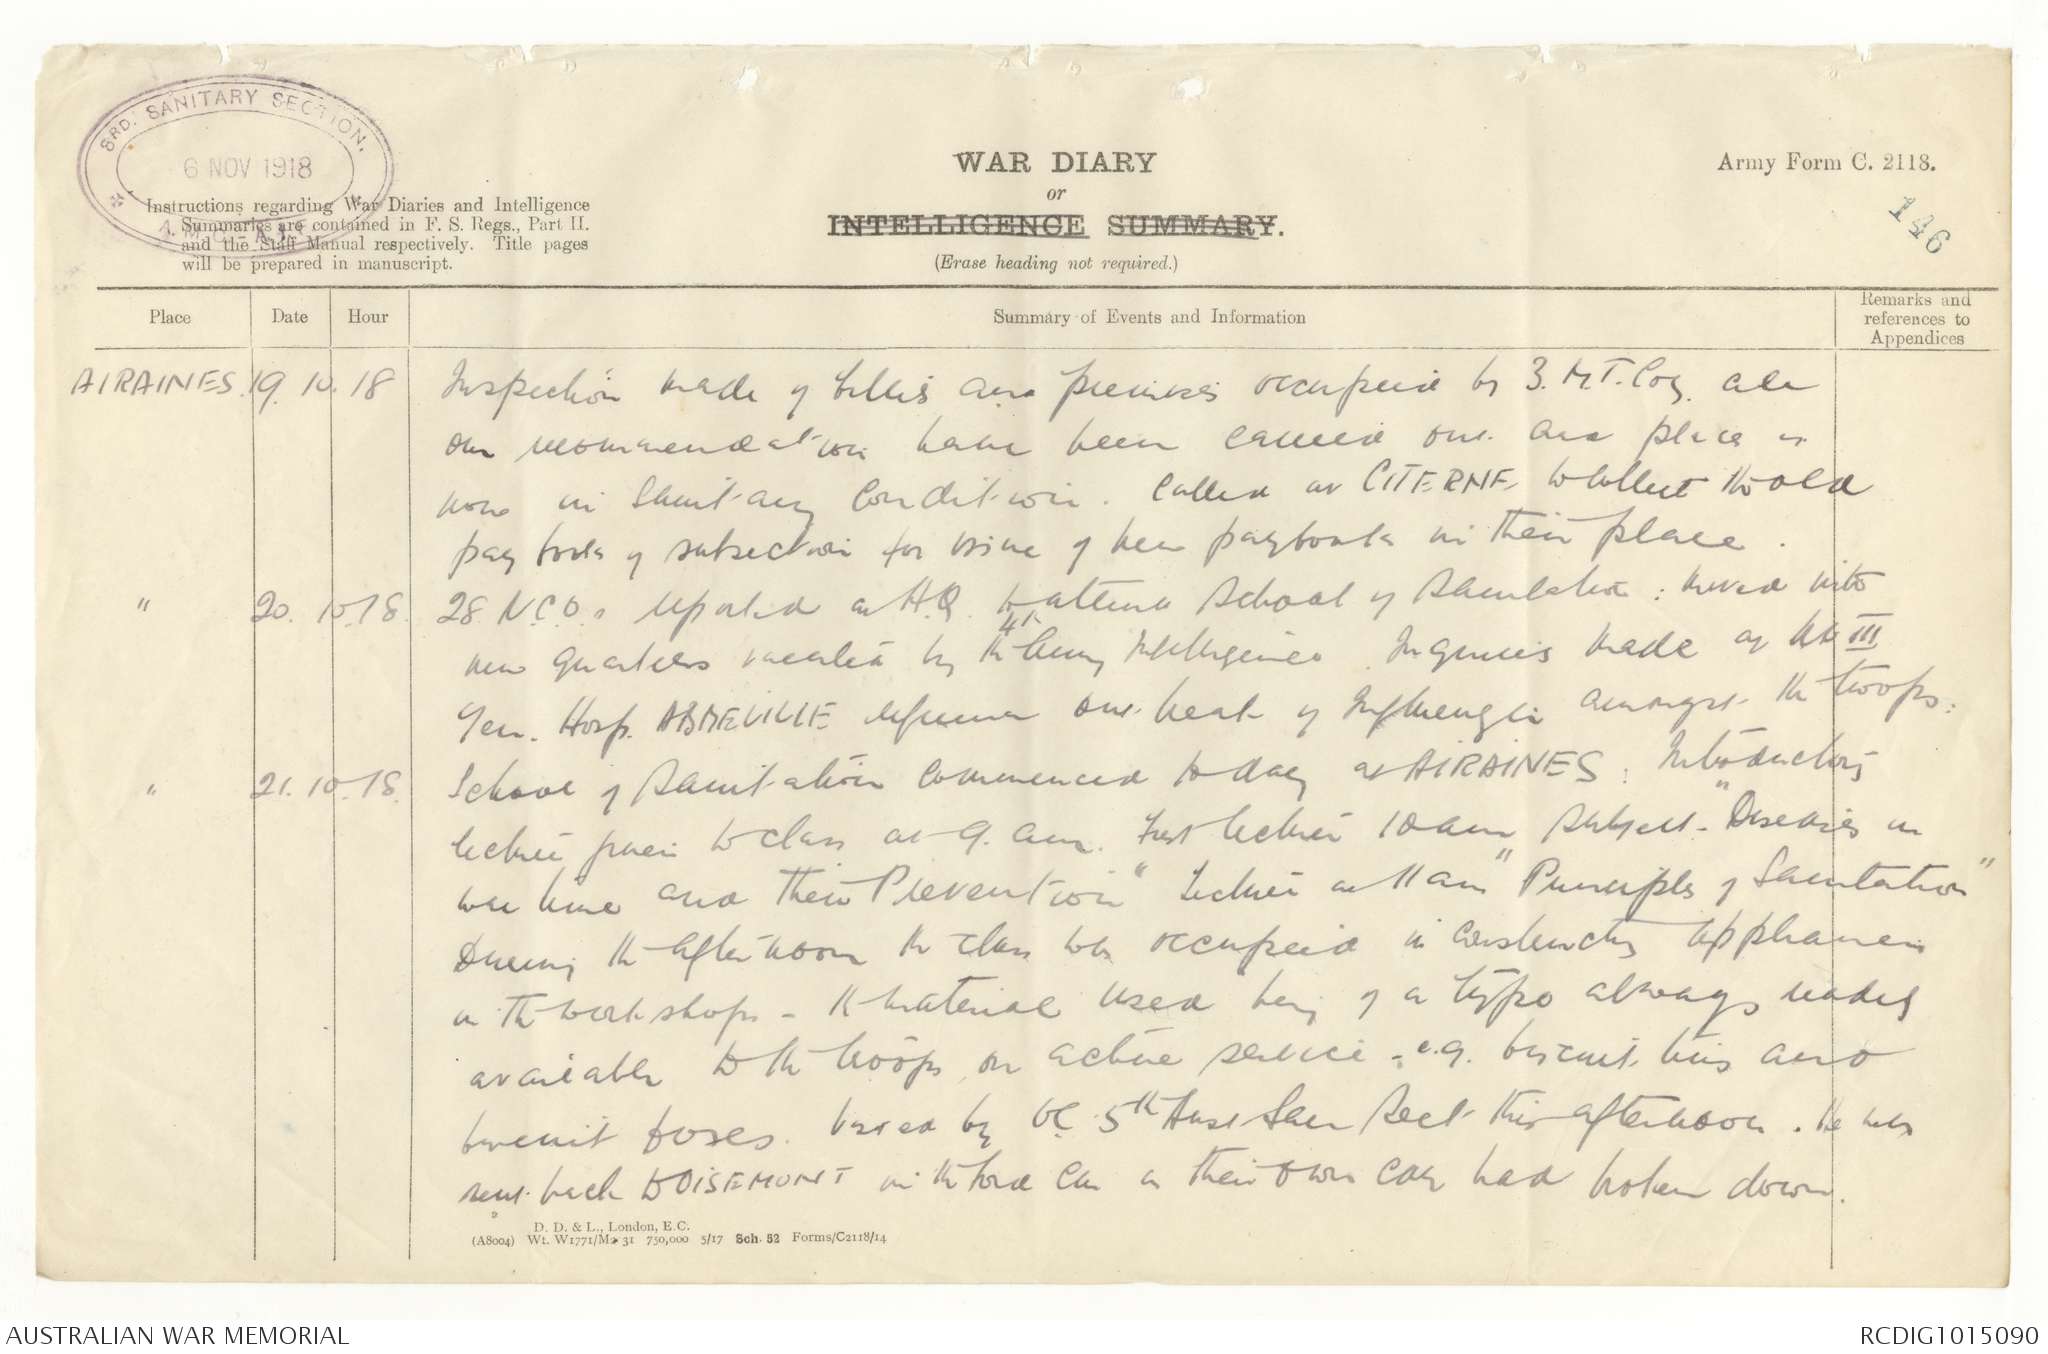 3RD. SANITARY SECTION,
6 NOV 1918
A.M.C. - A.I.F.
Instructions regarding War Diaries and Intelligence
Summaries are contained in F. S. Regs., Part II.
and the Staff Manual respectively. Title pages
will be prepared in manuscript.
WAR DIARY
or
INTELLIGENCE SUMMARY.
(Erase heading not required.)
Army Form C. 2118.
146
Place Date Hour Summary of Events and Information Remarks and references to Appendices
AIRAINES. 19. 10. 18 Inspection made of billets and premises occupied by 3. M.T. Coy. all
our recommendations have been carried out and place is
now in Sanitary Condition. Called at CITERNE to collect the old
pay books of subsection for issue of new paybooks in their place.
" 20. 10. 18. 28 N.C.O.s reported at H.Q. to attend School of Sanitation: moved into
new quarters vacated by the 4th Army Intelligence. Inquiries made at No III
Gen. Hosp. ABBEVILLE re outbreak of Influenza amongst the troops.
" 21. 10. 18. School of Sanitation commenced today at AIRAINES: Introductory
lecture given to class at 9. am. First lecture 10 am Subject - "Diseases in
war time and their Prevention" Lecture at 11 am "Principles of Sanitation"
During the afternoon the class was occupied in constructing appliances
in the workshops - the material used being of a type always readily
available to the troops on active service - e.g. biscuit tins and
biscuit boxes. Visited by OC 5th Aust San Sect this afternoon. He was
sent back to OISEMONT in the Ford Car as their own car had broken down.
D. D. & L., London, E.C.
(A8004) Wt. W1771/M2 31 750,000 5/17 Sch. 52 Forms/C2118/14
AUSTRALIAN WAR MEMORIAL
RCDIG1015090